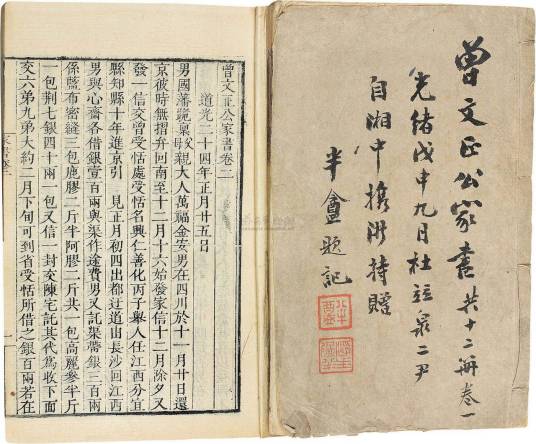 曾文正公家書共十二冊卷一
光緒戊申九月杜竝泉二尹
自湘中攜持贈
半盦題記
曾文正公家書卷二
道光二十四年正月廿五日
男國藩跪稟父母親大人萬福金安男在四川於十一月廿日還
京彼時無摺弁回南至十二月十六始發家信十二月除夕又
發一信交曾受恬處受恬名興仁善化丙子舉人任江西分宜
縣知縣十年進京引　見正月初四出都迂道由長沙回江西
男與心齋各借銀壹百兩與渠作途費男又託渠帶銀三百兩
係藍布密縫三包鹿膠二斤半阿膠二斤共一包高麗參半斤
一包荆七銀四十兩一包又信一封交陳宅託其代爲收下面
交六弟九弟大約二月下旬可到省受恬所借之銀百兩若在